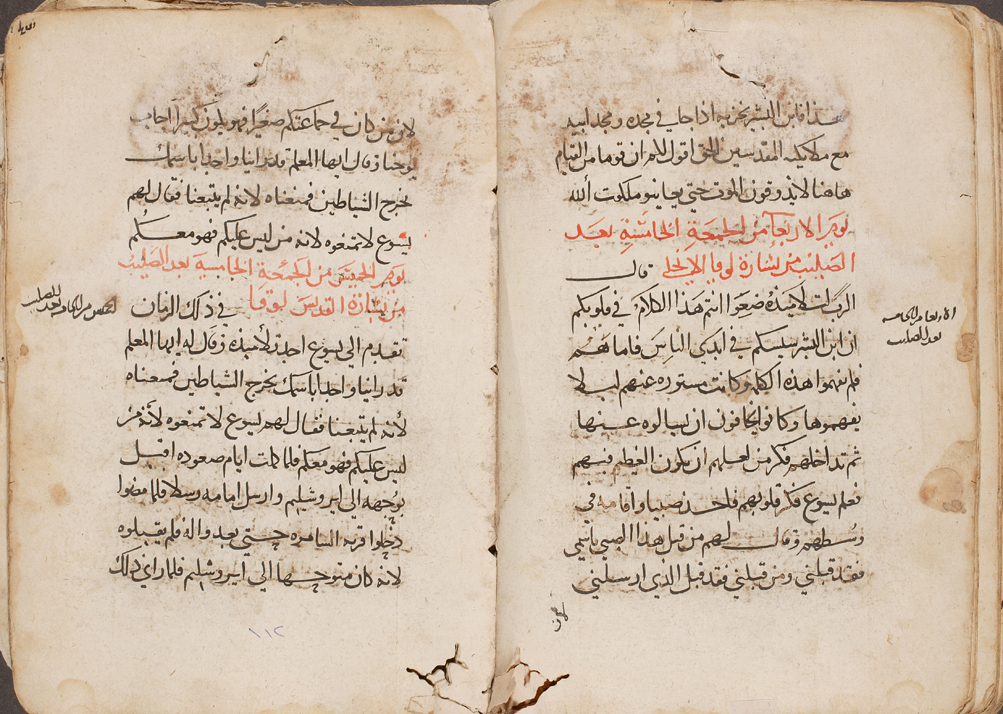 هذا فابن البشر يخزيه اذا جا في مجده ومجد ابيه
مع ملايكته المقدسين الحق اقول لكم ان قوما من القيام
هاهنا لا يذوقون الموت حتي يعاينو ملكوت الله
يوم الاربعا من الجمعة الخامسة بعيد
الصليب من بشارة لوقا الانجيلي قال
الرب لتلاميذه ضعوا انتم هذا الكلام في قلوبكم
ان ابن البشر سيسلم في ايدي الناس فاما هم
فلم يفهموا هذه الكلمه وكانت مستوره عنهم ليلا
يفهموها وكانوا يخافون ان يسالوه عنها
ثم تداخلهم فكر من لعلهم ان يكون العظيم فيهم
فعلم يسوع فكر قلوبهم فاخد صبيا واقامه في
وسطهم وقال لهم من قبل هذا الصبي باسمي
فقد قبلني ومن قبلني فقد قبل الذي ارسلني
لان من
الاربعا من الجمعه الخامسه
بعد الصليب
لان من كان في جماعتكم صغيرا فهو يكون كبيرا اجاب
يوحنا وقال ايها المعلم قد راينا واحدا باسمك
يخرج الشياطين فمنعناه لانه لم يتبعنا فقال لهم
يسوع لا تمنعوه لانه من ليس عليكم فهو معكم
يوم الخميس من الجمعة الخامسة بعد الصليب
من بشارة القديس لوقا في ذلك الزمان
تقدم الي يسوع احد تلاميذه وقال له ايها المعلم
قد راينا واحدا باسمك يخرج الشياطين فمنعناه
لأنه لم يتبعنا فقال لهم يسوع لا تمنعوه لأنه من
ليس عليكم فهو معكم فلما كملت ايام صعوده اقبل
بوجهه الي ايروشليم وارسل امامه رسلا فلما مضوا
دخلوا قرية السامره حتي يعدوا له فلم يقبلوه
لانه كان متوجها الي ايروشليم فلما راي ذلك
١١٢